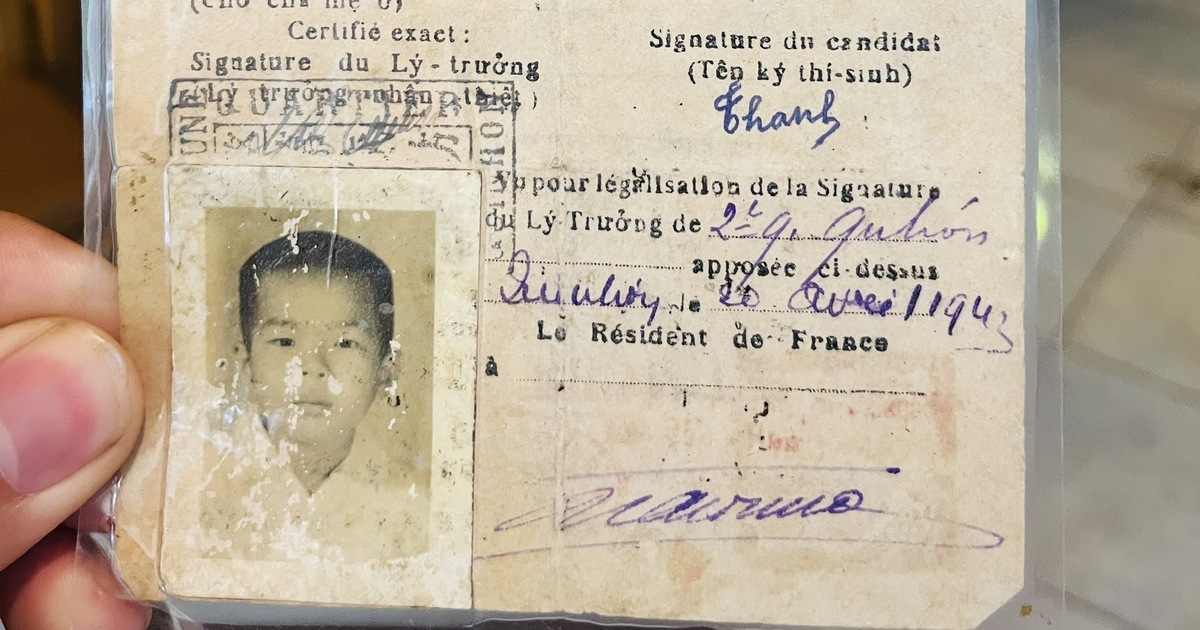 (cho cha mẹ ở)
Certifié exact:
Signature du Lý-trưởng
(Lý trưởng nhận thiệt)
QUARTIER
Signature du candidat
(Tên ký thí-sinh)
Thanh
Vu pour légalisation de la Signature
du Lý Trưởng de 2è q. Quinhón
apposée ci-dessus
Quinhơn, le 20 Avril 1943
Le Résident de France
à